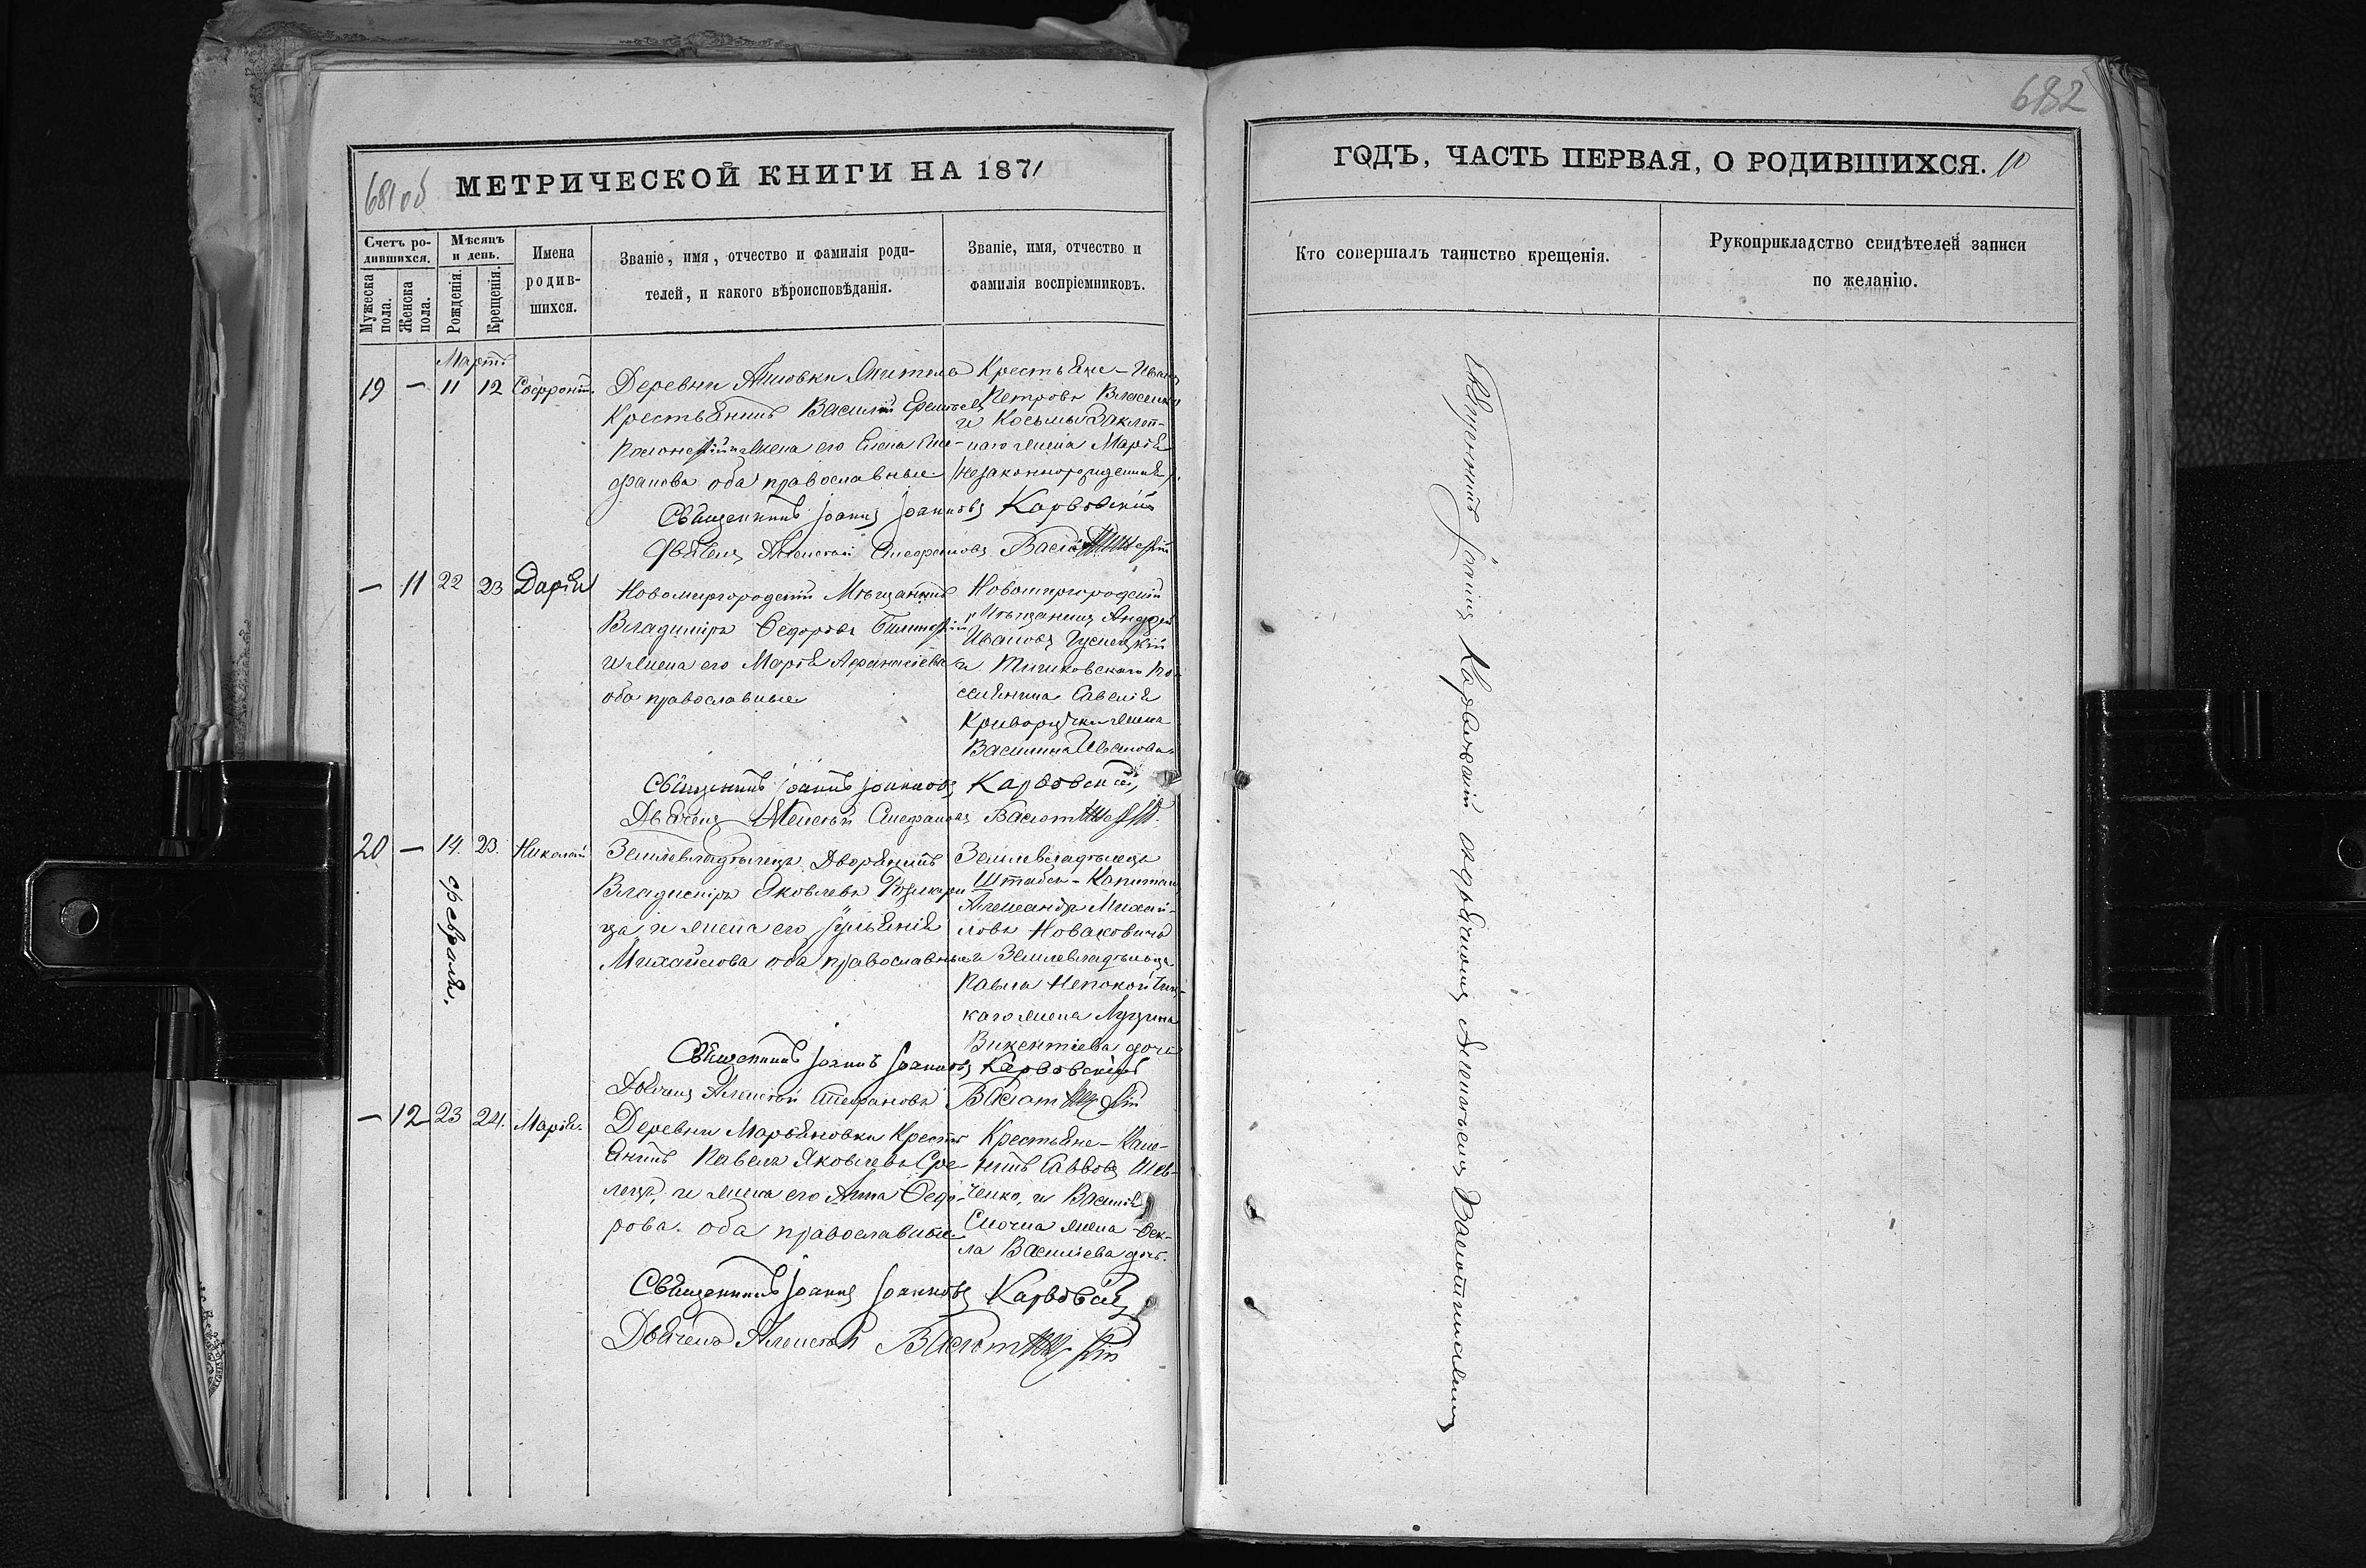 681 об
МЕТРИЧЕСКОЙ КНИГИ НА 1871
Счетъ ро-
дившихся.
Мѣсяцъ
и день.
Имена
родив-
шихся.
Званіе, имя, отчество и фамилія роди-
телей, и какого вѣроисповѣданія.
Званіе, имя, отчество и
фамилія воспріемниковъ.
Мужеска
пола.
Женска
пола.
Рожденія.
Крещенія.
Мартъ
19 — 11 12 Софроній
Деревни житель
Крестьянинъ Василій
жена его Елена Сте-
фанова оба православные
Крестьяне - Иванъ
Петровъ
и Косьмы
наго жена Марія
(незаконнорожденный).
Священникъ Іоаннъ Іоанновъ Карвовскій
Дьячекъ Алексѣй Стефановъ
— 11 22 23 Дарія
Новомиргородскій Мѣщанинъ
Владиміръ Ѳедоровъ
и жена его Марія Афанасіева
оба православные
Новомиргородскій
Мѣщанинъ Андрей
Ивановъ
и Тишковскаго по-
селянина Савелія
Криворучки жена
Василина Иванова
Священникъ Іоаннъ Іоанновъ Карвовскій
Дьячекъ Алексѣй Стефановъ
20 — 14. 23. Николай
февраля.
Землевладѣлецъ Дворянинъ
Владиміръ Яковлевъ
и жена его Іульянія
Михайлова оба православные
Землевладѣлецъ
Штабсъ-Капитанъ
Александръ Михай-
ловъ Новаковичъ
и Землевладѣльца
Павла Непокойчиц-
каго жена
Викентіева дочь
Священникъ Іоаннъ Іоанновъ Карвовскій
Дьячекъ Алексѣй Стефановъ
— 12 23 24. Марія.
Деревни Марьяновки Кресть
янинъ Павелъ Яковлевъ
и жена его Анна Ѳедо-
рова. оба православные
Крестьяне -
Саввовъ Шев-
ченко, и Василія
жена Ѳек-
ла Василіева дочь.
Священникъ Іоаннъ Іоанновъ Карвовскій
Дьячекъ Алексѣй
682
ГОДЪ, ЧАСТЬ ПЕРВАЯ, О РОДИВШИХСЯ. 10
Кто совершалъ таинство крещенія.
Рукоприкладство свидѣтелей записи
по желанію.
Священникъ Іоаннъ Карвовскій съ дьячкомъ Алексѣемъ